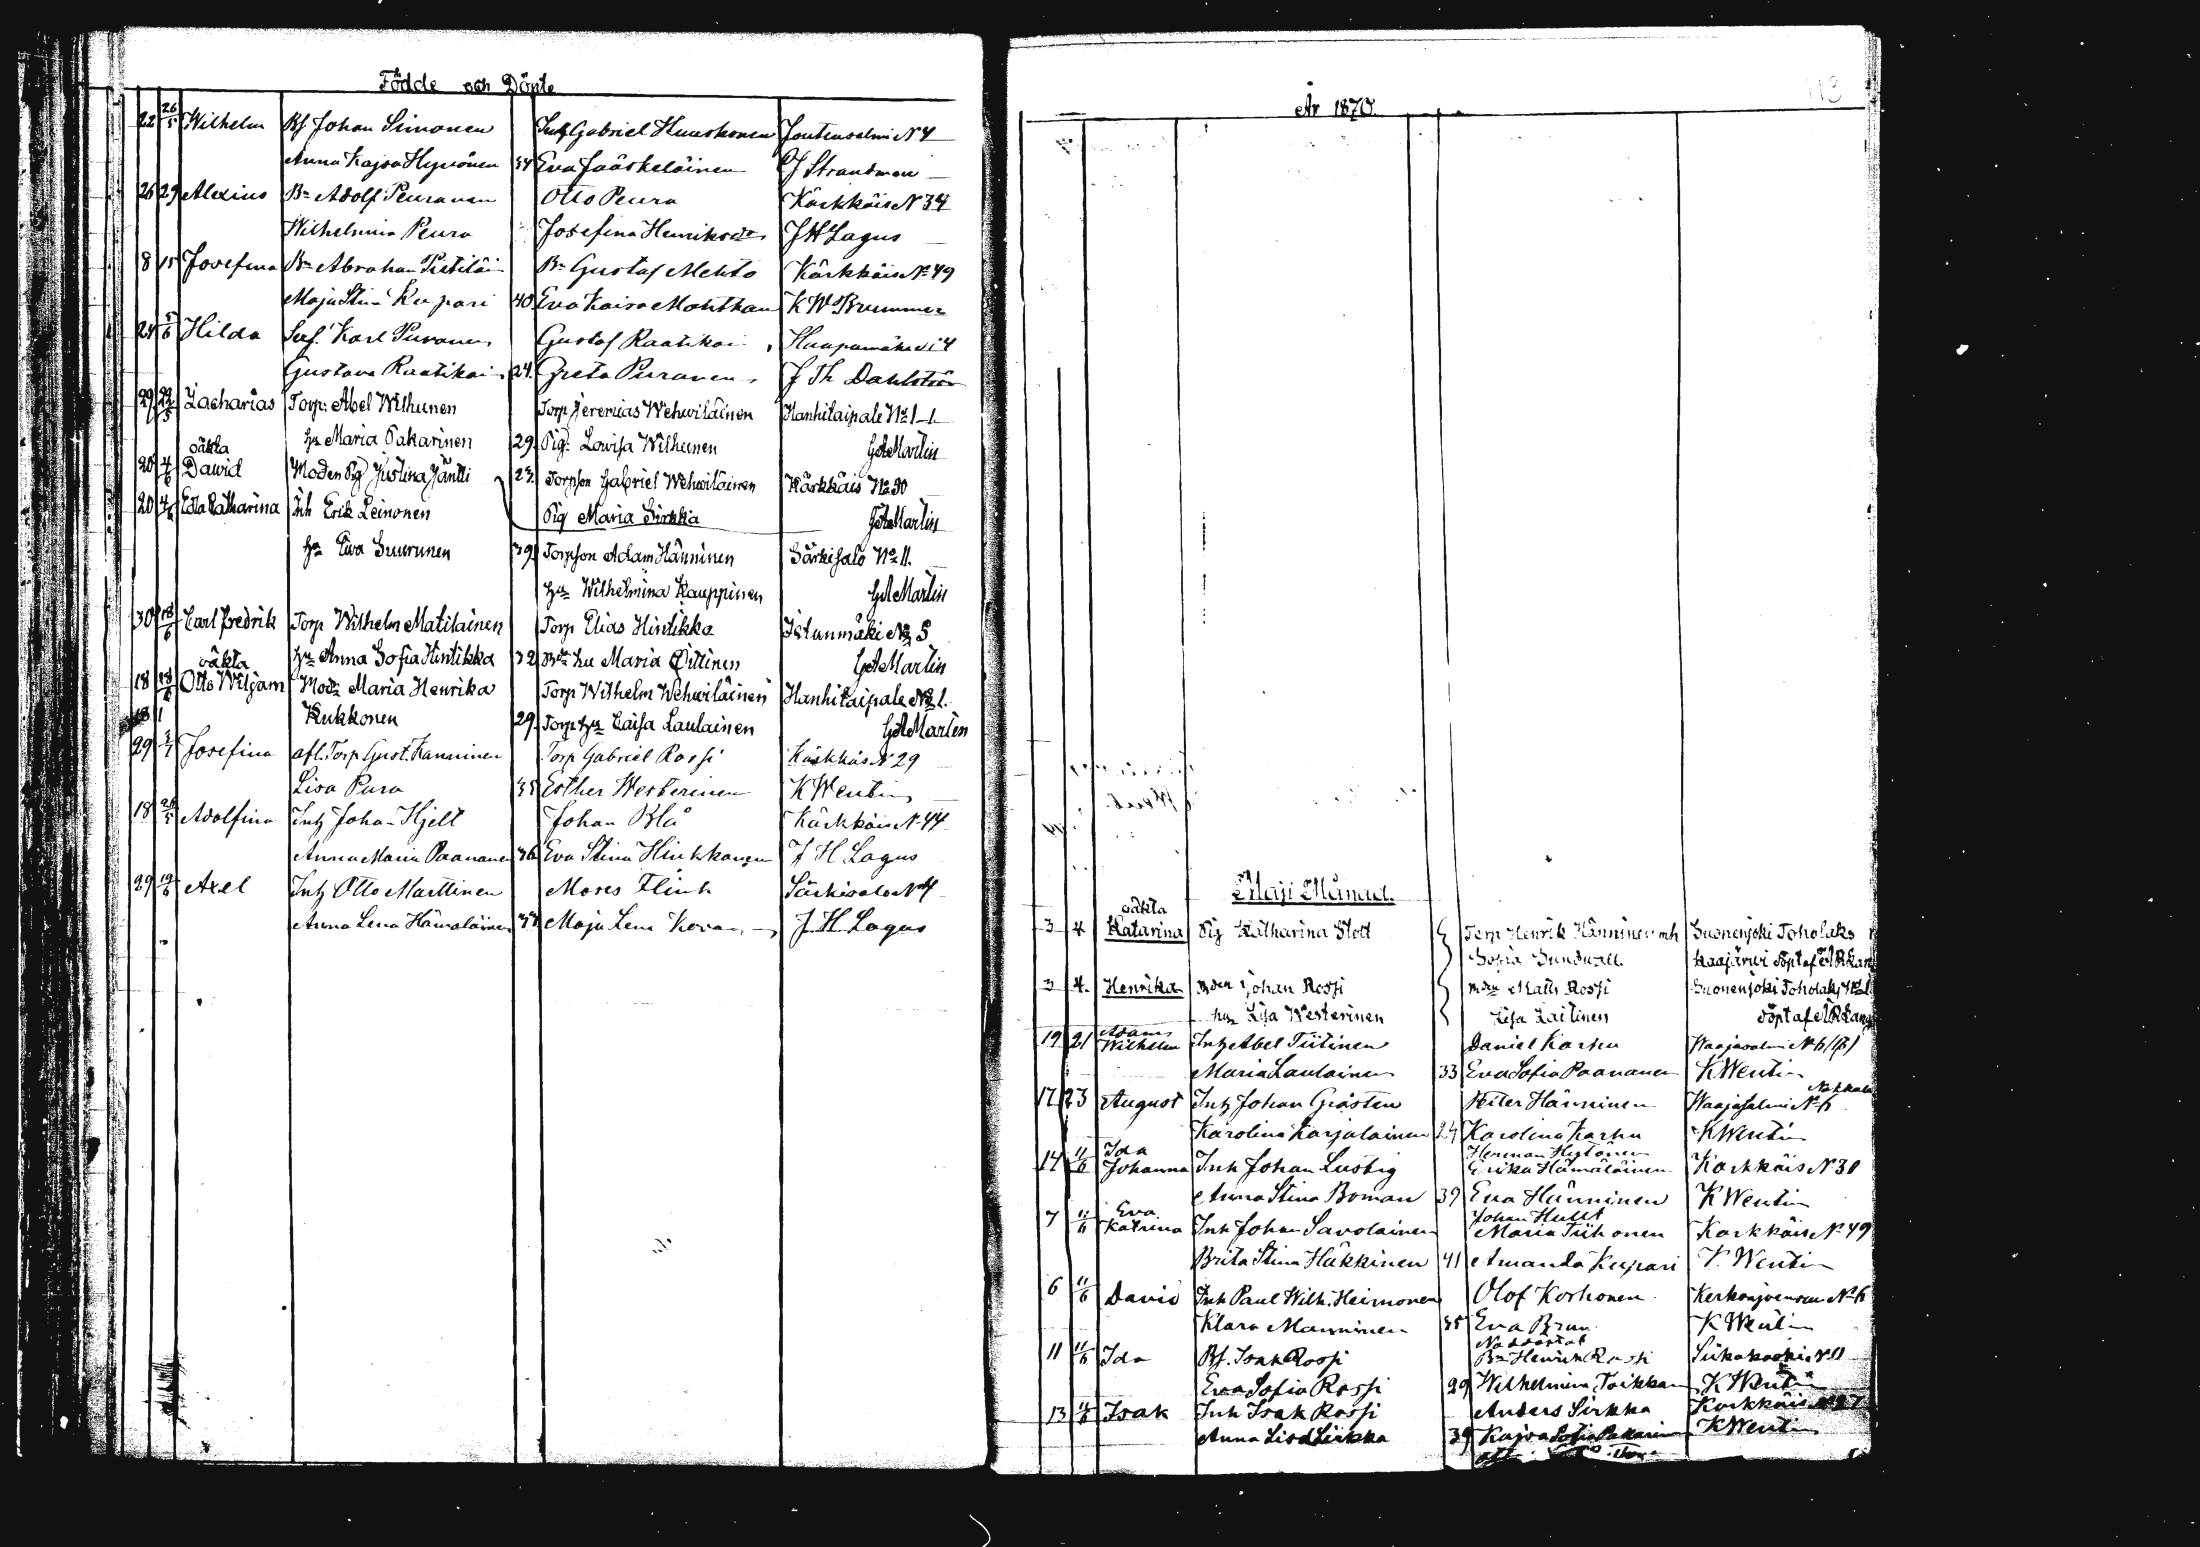 Födde och Döpte
22 26/5 Wilhelm Bf Johan Simonen Inh Gabriel Huuskonen Joutensalmi N 4
Anna Kajsa Hyvönen 34 Eva Jääskeläinen J Strandman
26 29 Alexius Bn Adolf Peuranen Otto Peura Kärkkäis N 34
Wilhelmina Peura Josefina Henriksdr J H Lagus
8 15 Josefina Bn Abraham Pietiläin Bn Gustaf Mehto Kärkkäis N 49
Maja Stina Kupari 40 Eva Kaisa K W Brummer
24 5/6 Hilda Karl Puranen Gustaf Raatikain Haapamäki N 4
Gustava Raatikain 24. Greta Puranen J Th Dahlström
29 29/5 Zacharias Torp: Abel Wilhunen Torp Jeremias Wehwiläinen Hanhitaipale No 1
hu Maria Pakarinen 29. Pig: Lowisa Wilhunen G A Martin
oäkta
20 4/6 Dawid Moden Pig Justina Jäntti 23. Torpson Gabriel Wehwiläinen Kärkkäis No 30
20 4/6 Edla Katharina Inh Erik Leinonen Pig Maria Sirkka G A Martin
hu Ewa Suurunen 39. Torpson Adam Hänninen Särkisalo No 11.
hu Wilhelmina Kauppinen G A Martin
30 18/6 Carl Fredrik Torp Wilhelm Matilainen Torp Elias Hintikka Istunmäki No 5
hu Anna Sofia Hintikka 32 hu Maria Pittinen G A Martin
oäkta
18 18/6 Otto Wiljam Mod: Maria Henrika Torp Wilhelm Wehwiläinen Hanhitaipale No 1.
Kukkonen 29. Torp hu Caisa Laulainen G A Martin
29 Josefina afl. Torp Gust. Kanninen Torp Gabriel Rossi Kärkkäis N 29
Lisa Pura 35 Esther Westerinen K Wentin
18 Adolfina Inh Johan Hjelt Johan Blå Kärkkäis N 44
Anna Maria Paananen 36 Eva Stina Hinkkanen J H Lagus
29 19/6 Axel Inh Otto Marttinen Moses Flink Särkisalo N 4
Anna Lena Hämäläinen Maja Lena J H Lagus
År 1870.
113
Maji Månad.
oäkta
3 4 Katarina Pig Katharina Stolt Torp Henrik Hänninen mh Suonenjoki Toholaks
Sofia Sundvall
3 4. Henrika Johan Rossi Math Rossi Suonenjoki Toholaks No 1
hu Lisa Westerinen Lisa Laitinen
Adam
19 21 Wilhelm Inh Abel Tiitinen Daniel Karhu Waajasalmi N 6
Maria Laulainen 33 Eva Sofia Paananen K Wentin
17 23 August Inh Johan Grästen Petter Hänninen Waajasalmi N 6
Karolina Karjalainen 24 Karolina Karhu K Wentin
Ida Herman Hytönen
14 11/6 Johanna Inh Johan Lustig Erika Hämäläinen Kärkkäis N 30
Anna Stina Boman 39 Eva Hänninen K Wentin
Eva Johan Hullt
7 11/6 Katrina Inh Johan Savolainen Maria Tiihonen Kärkkäis N 49
Brita Stina Häkkinen 41 Amanda Kupari K Wentin
6 11/6 David Inh Paul Wilh. Heimonen Olof Korhonen Kerkonjoensuu N 6
Klara Manninen 35 Eva Brun K Wentin
Nöddöpt af
11 11/6 Ida Bf. Isak Rossi Bn Henrik Rossi Siikakoski N 11
Eva Sofia Rossi 29 Wilhelmina Toikkan K Wentin
13 11/6 Isak Inh Isak Rossi Anders Sirkka Kärkkäis N 27
Anna Lisa Sirkka 39 Kajsa Sofia Pakarinen K Wentin